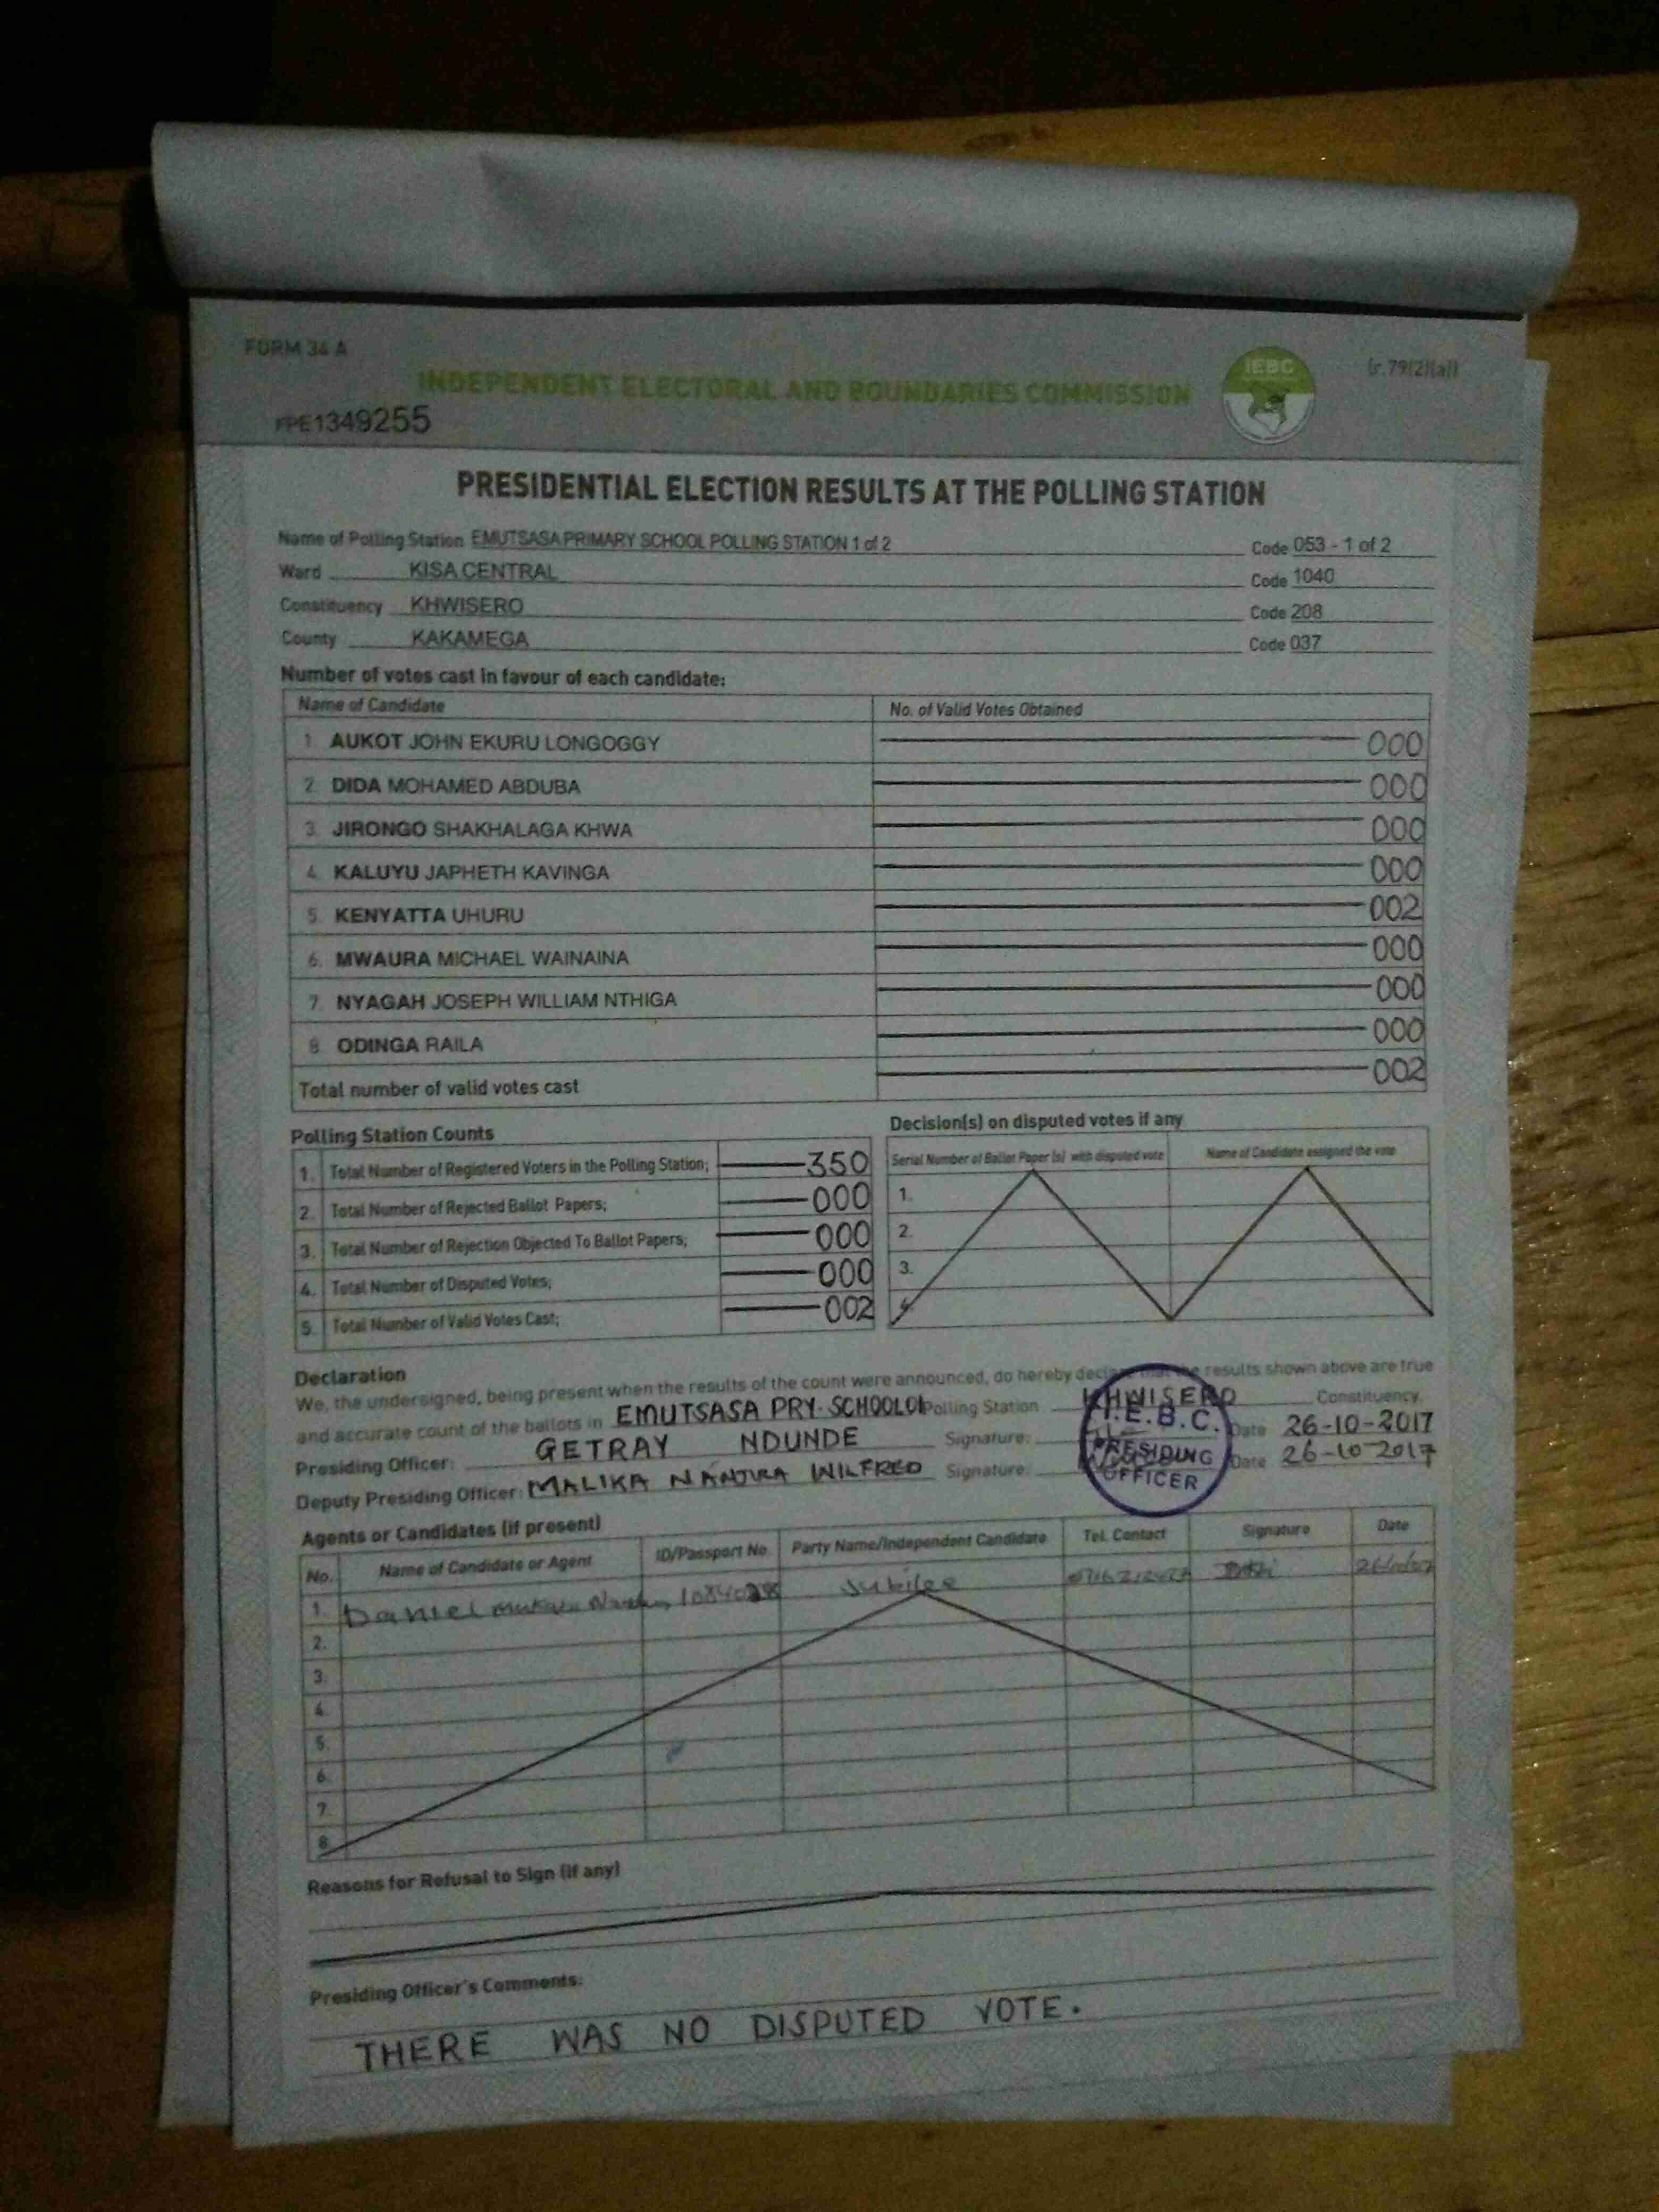 FORM 34 A
IEBC
(r.79(2)(a))
INDEPENDENT ELECTORAL AND BOUNDARIES COMMISSION
FPE1349255
PRESIDENTIAL ELECTION RESULTS AT THE POLLING STATION
Name of Polling Station EMUTSASA PRIMARY SCHOOL POLLING STATION 1 of 2 Code 053 - 1 of 2
Ward KISA CENTRAL Code 1040
Constituency KHWISERO Code 208
County KAKAMEGA Code 037
Number of votes cast in favour of each candidate:
Name of Candidate No. of Valid Votes Obtained
1. AUKOT JOHN EKURU LONGOGGY 000
2. DIDA MOHAMED ABDUBA 000
3. JIRONGO SHAKHALAGA KHWA 000
4. KALUYU JAPHETH KAVINGA 000
5. KENYATTA UHURU 002
6. MWAURA MICHAEL WAINAINA 000
7. NYAGAH JOSEPH WILLIAM NTHIGA 000
8. ODINGA RAILA 000
Total number of valid votes cast 002
Polling Station Counts
1. Total Number of Registered Voters in the Polling Station; 350
2. Total Number of Rejected Ballot Papers; 000
3. Total Number of Rejection Objected To Ballot Papers; 000
4. Total Number of Disputed Votes; 000
5. Total Number of Valid Votes Cast; 002
Decision(s) on disputed votes if any
Serial Number of Ballot Paper (s) with disputed vote Name of Candidate assigned the vote
1.
2.
3.
4.
Declaration
We, the undersigned, being present when the results of the count were announced, do hereby declare that the results shown above are true
and accurate count of the ballots in EMUTSASA PRY. SCHOOL 01 Polling Station KHWISERO Constituency.
Presiding Officer: GETRAY NDUNDE Signature: Date 26-10-2017
Deputy Presiding Officer: MALIKA WILFRED Signature: Date 26-10-2017
I.E.B.C.
PRESIDING
OFFICER
Agents or Candidates (if present)
No. Name of Candidate or Agent ID/Passport No. Party Name/Independent Candidate Tel. Contact Signature Date
1. Daniel Jubilee
2.
3.
4.
5.
6.
7.
8.
Reasons for Refusal to Sign (if any)
Presiding Officer's Comments:
THERE WAS NO DISPUTED VOTE.